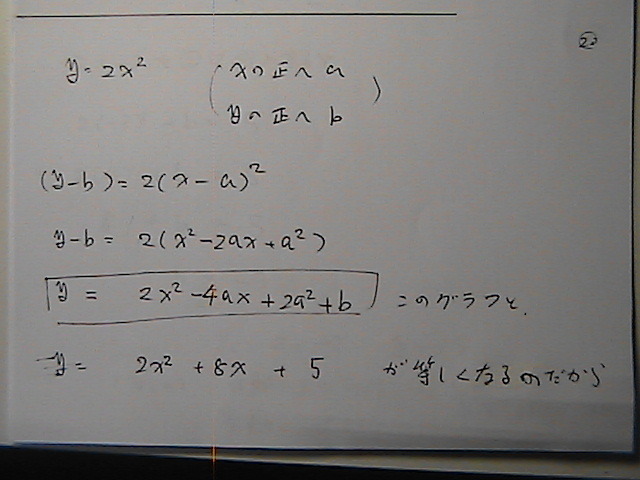 22
y = 2x² (xの正へ a
yの正へ b)
(y-b) = 2(x-a)²
y-b = 2(x²-2ax+a²)
y = 2x²-4ax+2a²+b このグラフと.
y = 2x²+8x+5 が等しくなるのだから